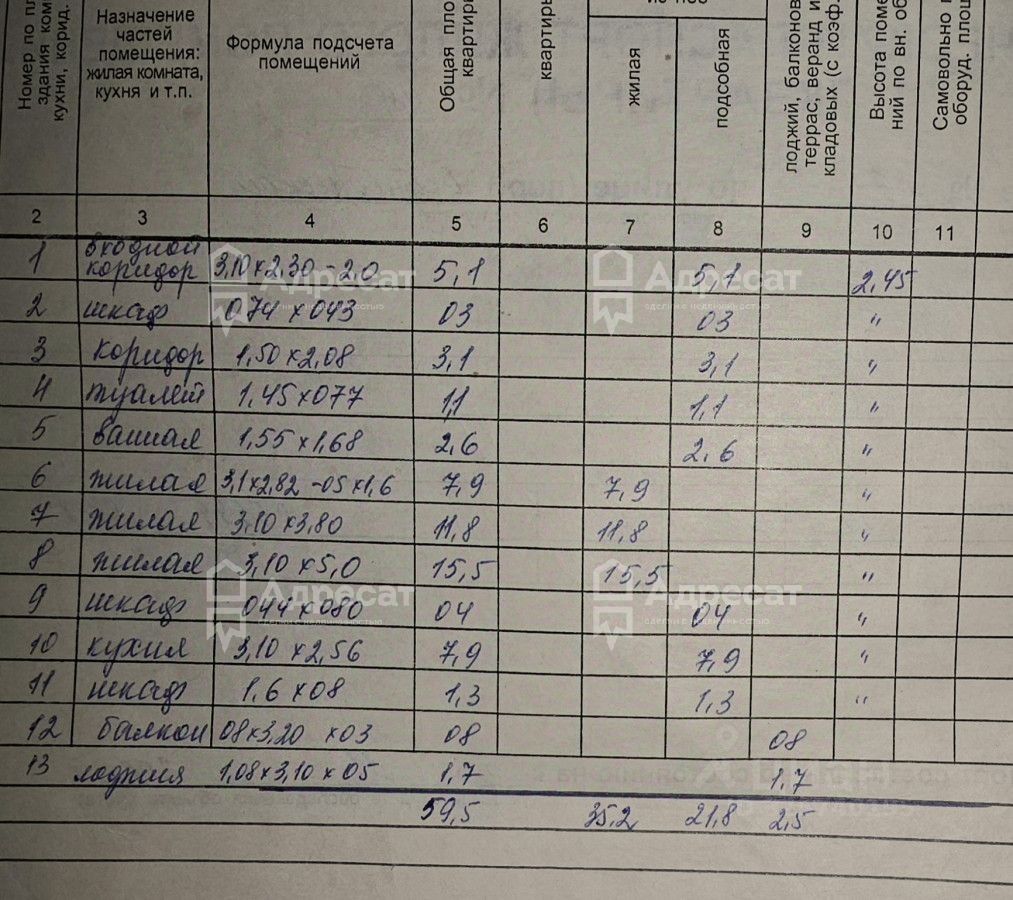 Номер по пл
здания ком
кухни, корид.
Назначение
частей
помещения:
жилая комната,
кухня и т.п.
Формула подсчета
помещений
Общая пло
квартиры
квартиры
из нее
жилая
подсобная
лоджий, балконов
террас, веранд и
кладовых (с коэф.
Высота поме
ний по вн. об
Самовольно
оборуд. площ
2 3 4 5 6 7 8 9 10 11
1 входной коридор 3,10x2,30-2,0 5,1 5,1 2,45
2 шкаф 074x043 03 03 "
3 коридор 1,50x2,08 3,1 3,1 "
4 туалет 1,45x077 1,1 1,1 "
5 ванная 1,55x1,68 2,6 2,6 "
6 жилая 3,1x2,82-05x1,6 7,9 7,9 "
7 жилая 3,10x3,80 11,8 11,8 "
8 жилая 3,10x5,0 15,5 15,5 "
9 шкаф 044x080 04 04 "
10 кухня 3,10x2,56 7,9 7,9 "
11 шкаф 1,6x08 1,3 1,3 "
12 балкон 08x3,20 x03 08 08
13 лоджия 1,08x3,10x05 1,7 1,7
59,5 35,2 21,8 2,5
Адресат
сделки с недвижимостью
Адресат
сделки с недвижимостью
Адресат
сделки с недвижимостью
Адресат
сделки с недвижимостью